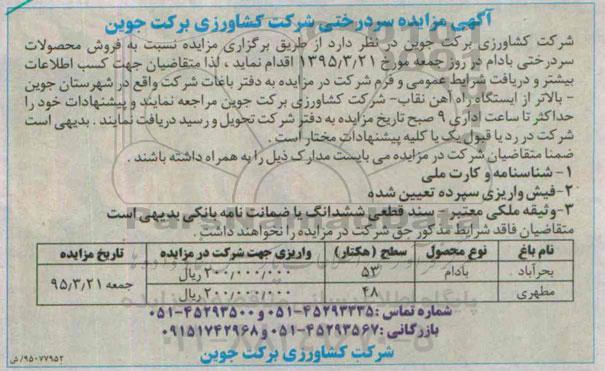 آگهی مزایده سردرختی شرکت کشاورزی برکت جوین
شرکت کشاورزی برکت جوین در نظر دارد از طریق برگزاری مزایده نسبت به فروش محصولات
سردرختی بادام در روز جمعه مورخ ۱۳۹۵/۳/۲۱ اقدام نماید ، لذا متقاضیان جهت کسب اطلاعات
بیشتر و دریافت شرایط عمومی و فرم شرکت در مزایده به دفتر باغات شرکت واقع در شهرستان جوین
- بالاتر از ایستگاه راه آهن نقاب- شرکت کشاورزی برکت جوین مراجعه نمایند و پیشنهادات خود را
حداکثر تا ساعت اداری ۹ صبح تاریخ مزایده به دفتر شرکت تحویل و رسید دریافت نمایند . بدیهی است
شرکت در رد یا قبول یک یا کلیه پیشنهادات مختار است .
ضمنا متقاضیان شرکت در مزایده می بایست مدارک ذیل را به همراه داشته باشند .
۱- شناسنامه و کارت ملی
۲-فیش واریزی سپرده تعیین شده
۳-وثیقه ملکی معتبر - سند قطعی ششدانگ یا ضمانت نامه بانکی بدیهی است
متقاضیان فاقد شرایط مذکور حق شرکت در مزایده را نخواهند داشت .
نام باغ نوع محصول سطح (هکتار) واریزی جهت شرکت در مزایده تاریخ مزایده
بحرآباد بادام ۵۳ ۲۰۰/۰۰۰/۰۰۰ ریال جمعه ۹۵/۳/۲۱
مطهری ۴۸ ۲۰۰/۰۰۰/۰۰۰ ریال
شماره تماس : ۴۵۲۹۳۳۳۵-۰۵۱ و ۴۵۲۹۳۵۰۰-۰۵۱
بازرگانی: ۴۵۲۹۳۵۶۷-۰۵۱ و ۰۹۱۵۱۷۴۲۹۶۸
شرکت کشاورزی برکت جوین
۹۵۰۷۷۹۵۲/ش